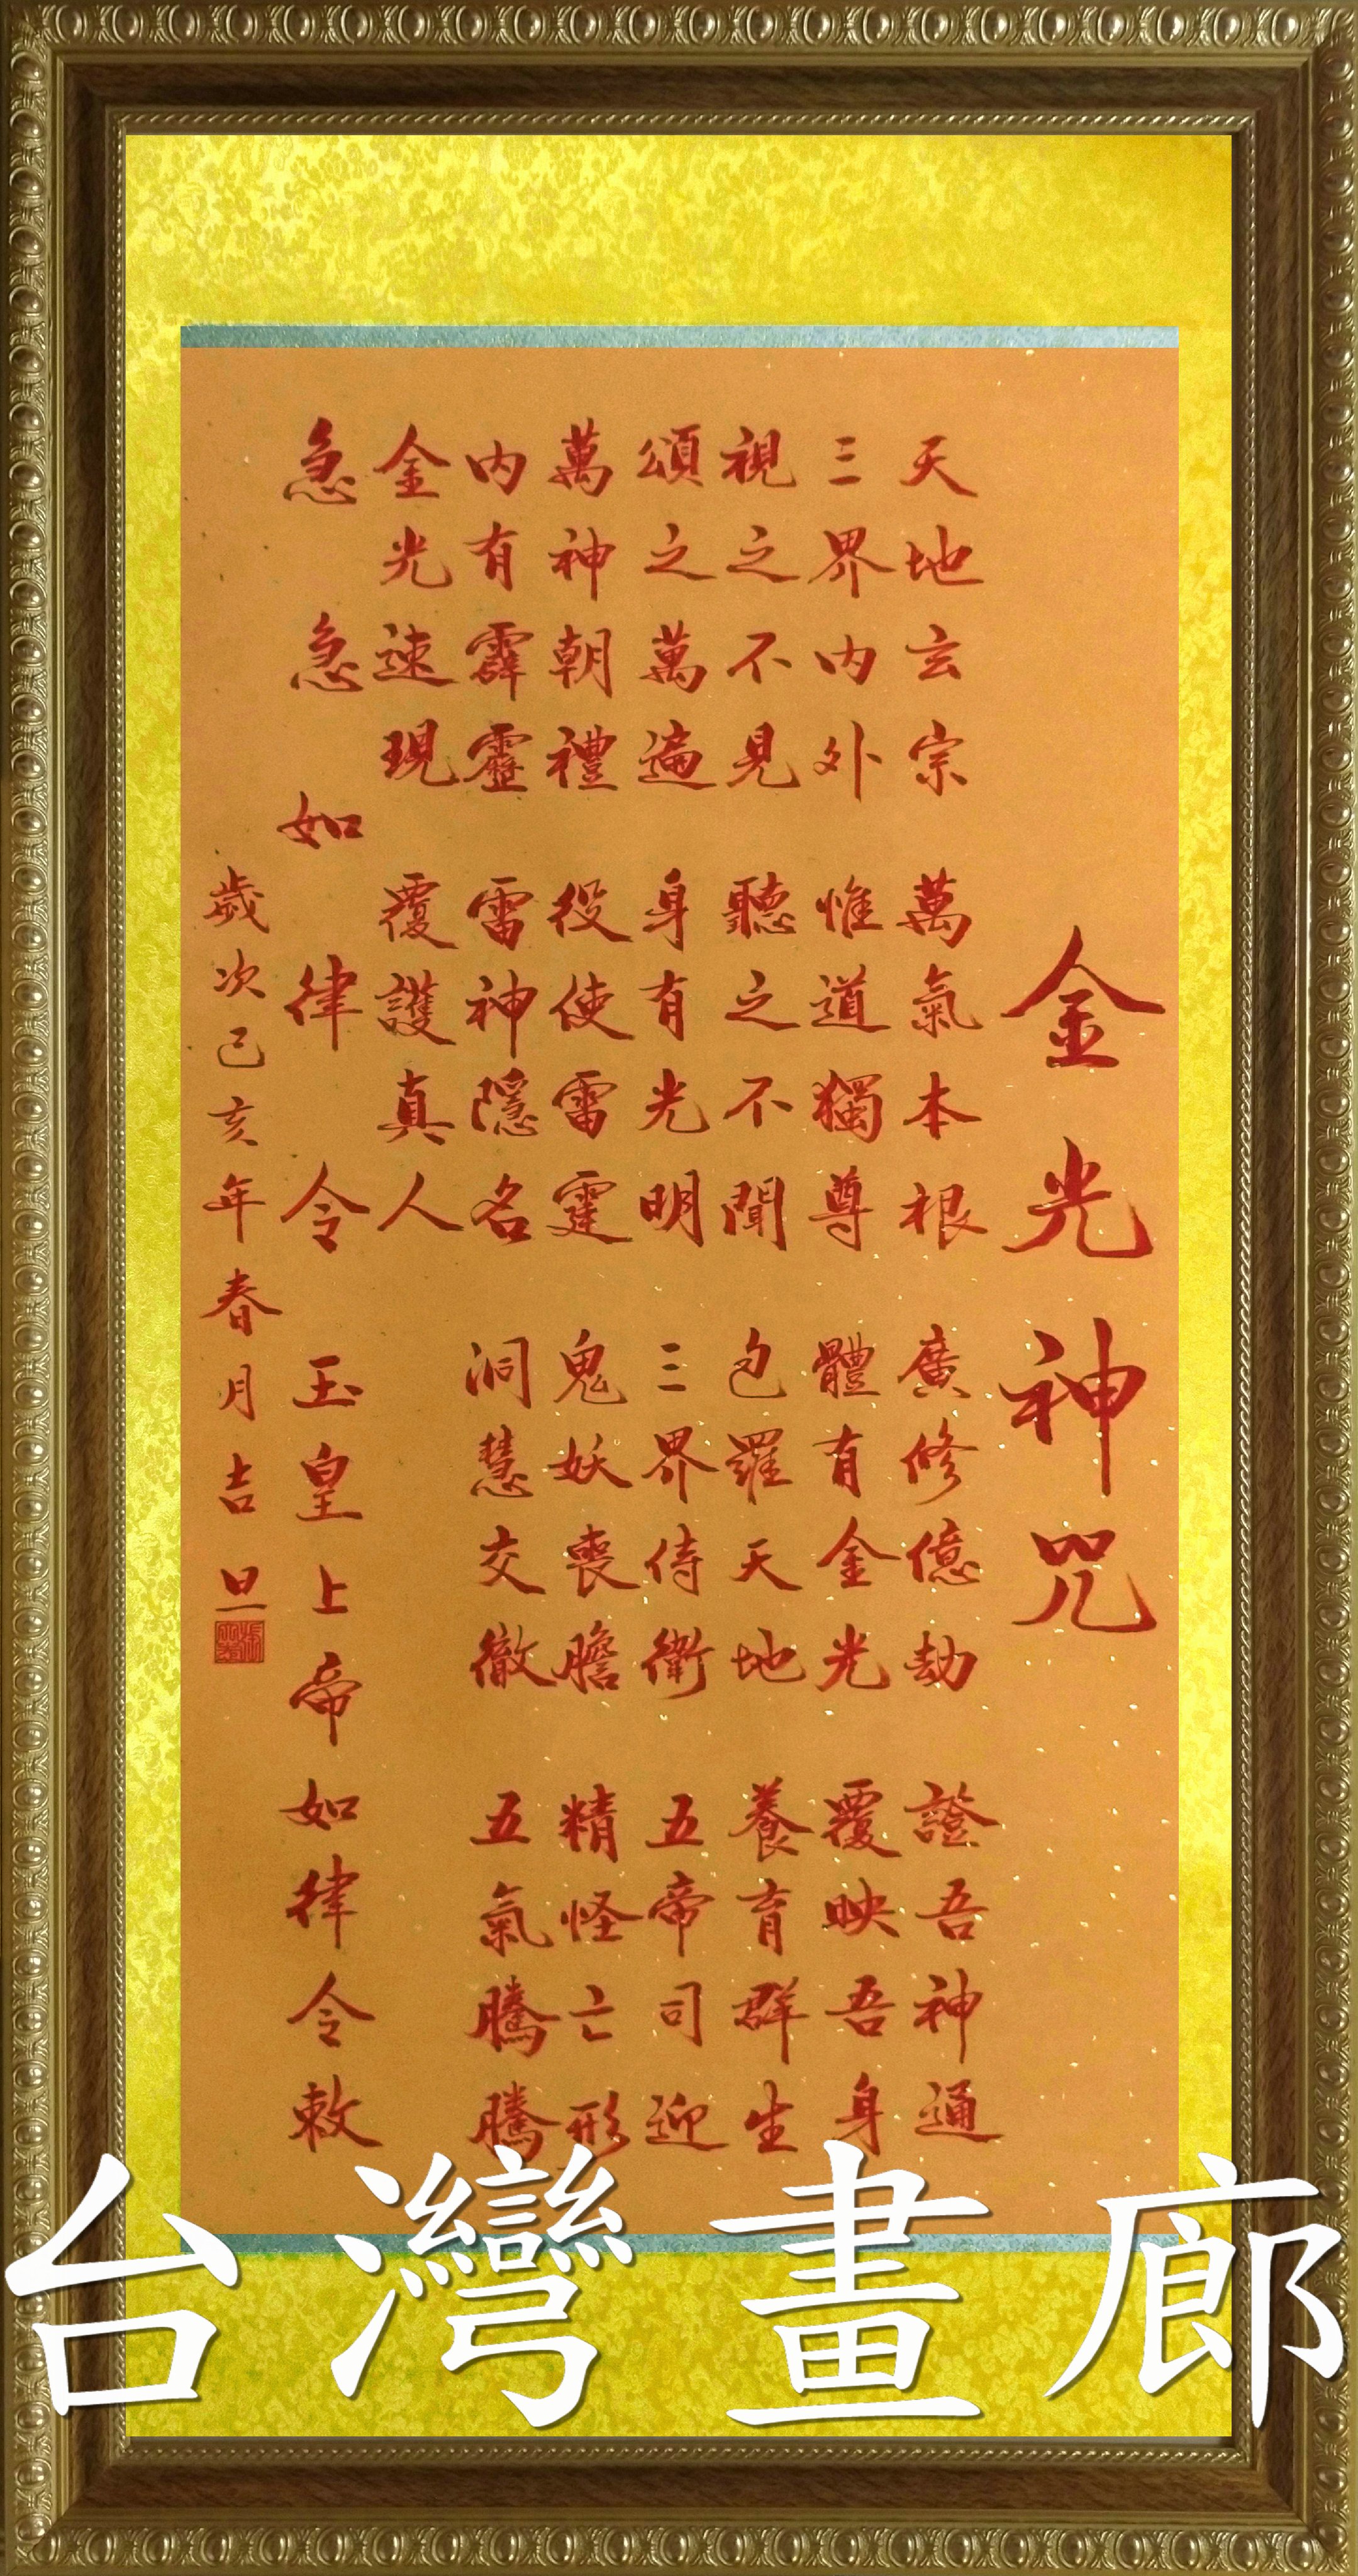 金光神咒
天地玄宗 萬氣本根 廣修億劫 證吾神通
三界內外 惟道獨尊 體有金光 覆映吾身
視之不見 聽之不聞 包羅天地 養育群生
頌之萬遍 身有光明 三界侍衛 五帝司迎
萬神朝禮 役使雷霆 鬼妖喪膽 精怪亡形
內有霹靈 雷神隱名 洞慧交徹 五氣騰騰
金光速現 覆護真人
急急如律令 玉皇上帝如律令敕
歲次己亥年春月吉旦
台灣畫廊